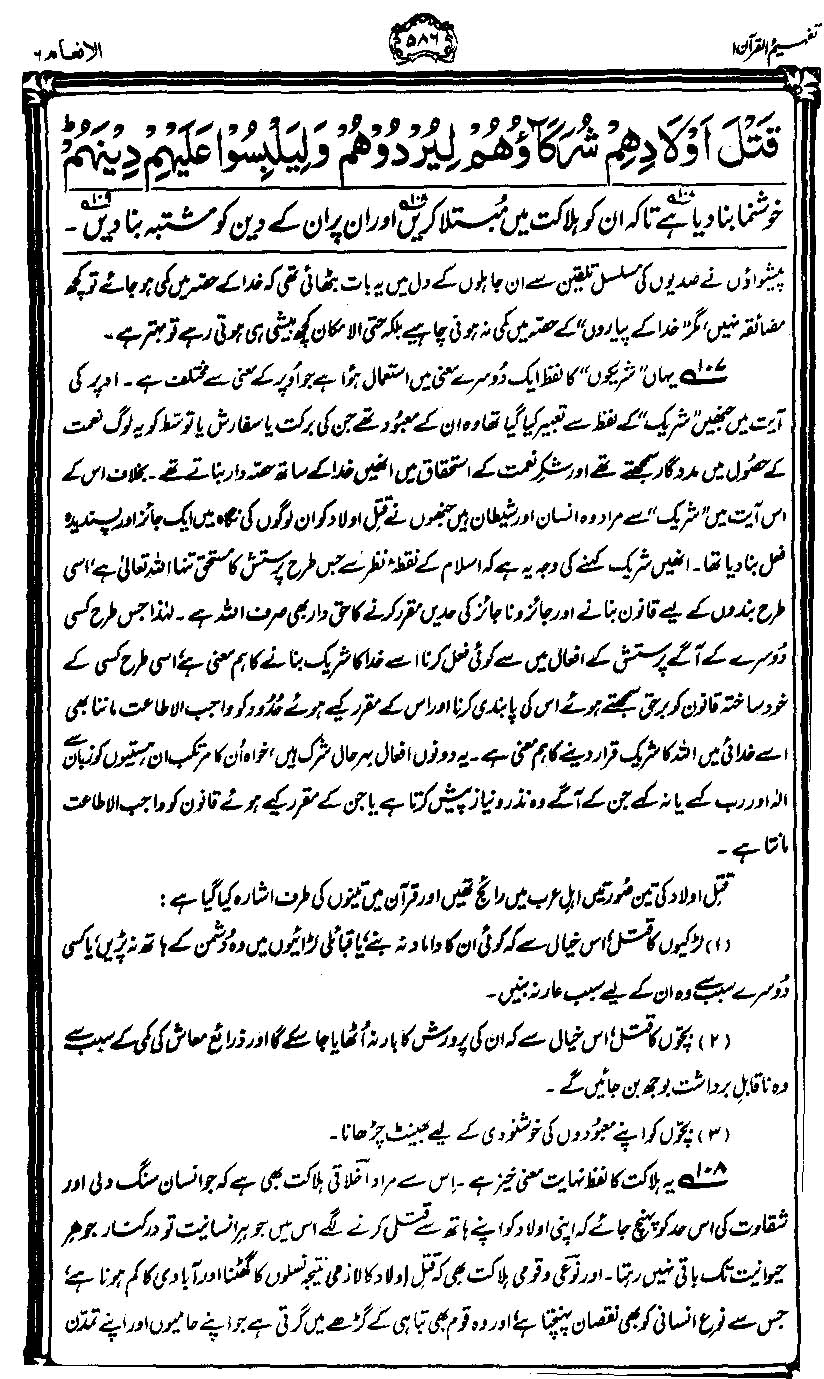 تفہیم القرآن ۱
۵۸۶
الانعام ۶
قَتْلَ اَوْلَادِهِمْ شُرَكَآؤُهُمْ لِيُرْدُوْهُمْ وَلِيَلْبِسُوْا عَلَيْهِمْ دِيْنَهُمْ ؕ
خوشنما بنا دیا ہے۱۰۷ تاکہ ان کو ہلاکت میں مبتلا کریں۱۰۸ اور ان پر ان کے دین کو مشتبہ بنا دیں۱۰۹۔
پیشواؤں نے صدیوں کی مسلسل تلقین سے ان جاہلوں کے دل میں یہ بات بٹھائی تھی کہ خدا کے حصّہ میں کمی ہو جائے تو کچھ
مضائقہ نہیں، مگر ”خدا کے پیاروں“ کے حصّہ میں کمی نہ ہونی چاہیے بلکہ حتی الامکان کچھ بیشی ہی ہوتی رہے تو بہتر ہے۔
۱۰۷ یہاں ”شریکوں“ کا لفظ ایک دُوسرے معنی میں استعمال ہوا ہے جو اُوپر کے معنی سے مختلف ہے۔ اوپر کی
آیت میں جنھیں ”شریک“ کے لفظ سے تعبیر کیا گیا تھا وہ ان کے معبُود تھے جن کی برکت یا سفارش یا توسّط کو یہ لوگ نعمت
کے حصُول میں مددگار سمجھتے تھے اور شکرِ نعمت کے استحقاق میں انھیں خدا کے ساتھ حصّہ دار بناتے تھے۔ بخلاف اس کے
اس آیت میں ”شریک“ سے مراد وہ انسان اور شیطان ہیں جنھوں نے قتلِ اولاد کو ان لوگوں کی نگاہ میں ایک جائز اور پسندیدہ
فعل بنا دیا تھا۔ انھیں شریک کہنے کی وجہ یہ ہے کہ اسلام کے نقطۂ نظر سے جس طرح پرستش کا مستحق تنہا اللہ تعالیٰ ہے، اسی
طرح بندوں کے لیے قانون بنانے اور جائز و ناجائز کی حدیں مقرر کرنے کا حق دار بھی صرف اللہ ہے۔ لہٰذا جس طرح کسی
دُوسرے کے آگے پرستش کے افعال میں سے کوئی فعل کرنا اسے خدا کا شریک بنانے کا ہم معنی ہے، اسی طرح کسی کے
خود ساختہ قانون کو برحق سمجھتے ہوئے اس کی پابندی کرنا اور اس کے مقرر کیے ہوئے حُدُود کو واجب الاطاعت ماننا بھی
اسے خدائی میں اللہ کا شریک قرار دینے کا ہم معنی ہے۔ یہ دونوں افعال بہرحال شرک ہیں، خواہ اُن کا مرتکب ان ہستیوں کو زبان سے
الٰہ اور رب کہے یا نہ کہے جن کے آگے وہ نذر و نیاز پیش کرتا ہے یا جن کے مقرر کیے ہوئے قانون کو واجب الاطاعت
مانتا ہے۔
قتلِ اولاد کی تین صُورتیں اہلِ عرب میں رائج تھیں اور قرآن میں تینوں کی طرف اشارہ کیا گیا ہے:
(۱) لڑکیوں کا قتل، اس خیال سے کہ کوئی ان کا داماد نہ بنے، یا قبائلی لڑائیوں میں وہ دُشمن کے ہاتھ نہ پڑیں، یا کسی
دُوسرے سبب سے وہ ان کے لیے سببِ عار نہ بنیں۔
(۲) بچّوں کا قتل، اس خیال سے کہ ان کی پرورش کا بار نہ اُٹھایا جا سکے گا اور ذرائع معاش کی کمی کے سبب سے
وہ ناقابلِ برداشت بوجھ بن جائیں گے۔
(۳) بچّوں کو اپنے معبُودوں کی خوشنودی کے لیے بھینٹ چڑھانا۔
۱۰۸ یہ ہلاکت کا لفظ نہایت معنی خیز ہے۔ اس سے مراد اخلاقی ہلاکت بھی ہے کہ جو انسان سنگ دلی اور
شقاوت کی اس حد کو پہنچ جائے کہ اپنی اولاد کو اپنے ہاتھ سے قتل کرنے لگے اس میں جوہرِ انسانیت تو درکنار جوہرِ
حیوانیت تک باقی نہیں رہتا۔ اور نوعی و قومی ہلاکت بھی کہ قتلِ اولاد کا لازمی نتیجہ نسلوں کا گھٹنا اور آبادی کا کم ہونا ہے،
جس سے نوعِ انسانی کو بھی نقصان پہنچتا ہے، اور وہ قوم بھی تباہی کے گڑھے میں گرتی ہے جو اپنے حامیوں اور اپنے تمدّن